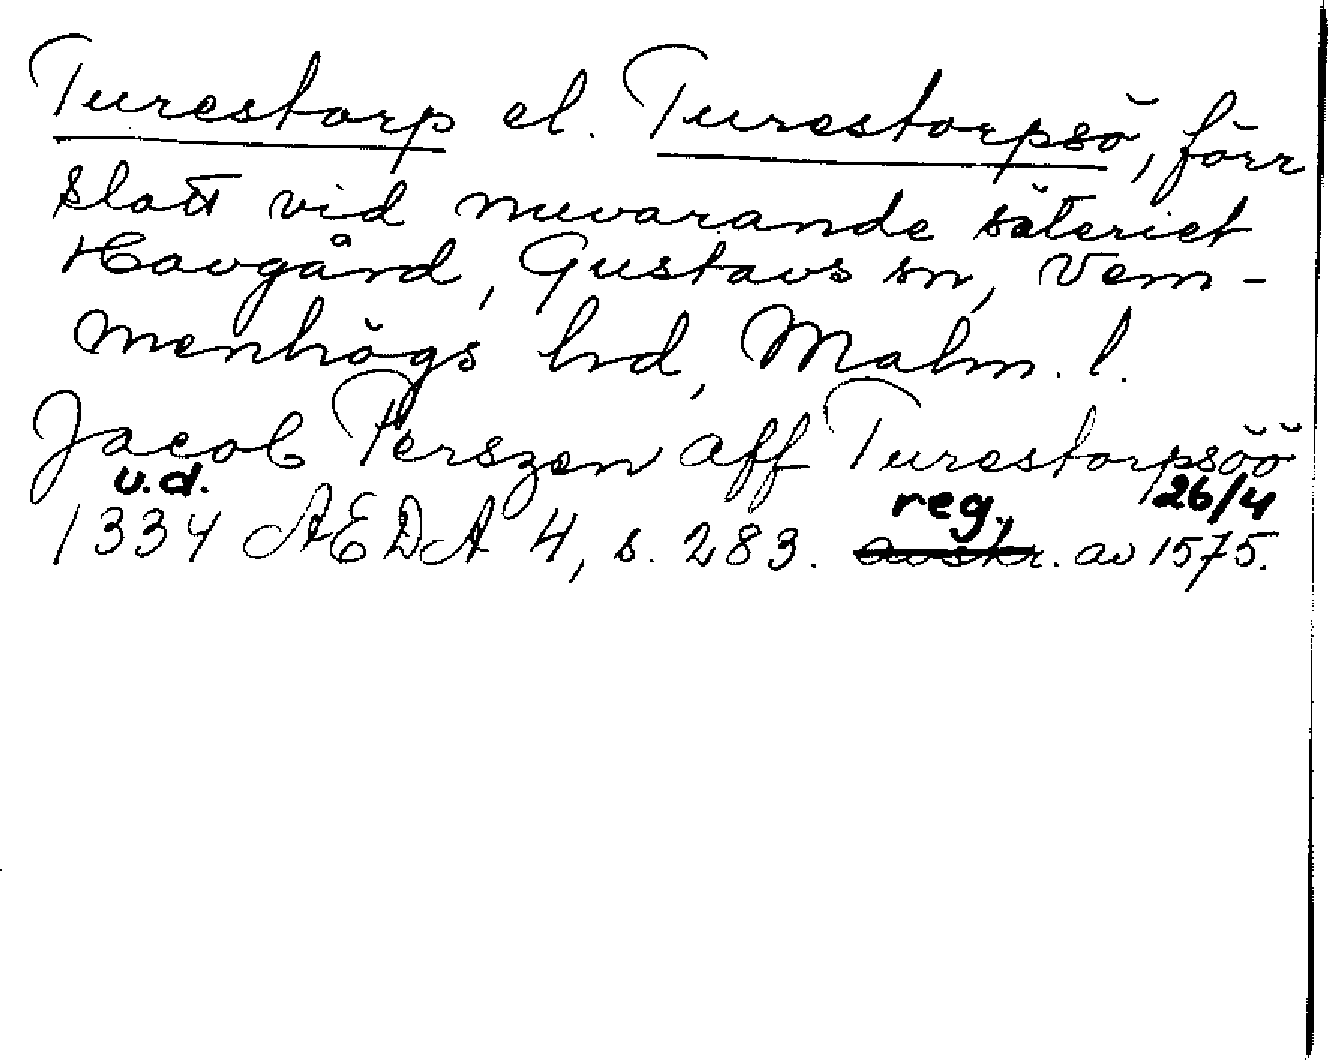 Turestorp el. Turestorpsö, förr
slott vid nuvarande säteriet
Havgård, Gustavs sn, Vem-
menhögs hd, Malm. l.
Jacob Perszen aff Turestorpsöö
u.d. reg. 26/4
1334 ÆDA 4, s. 283. avskr. av 1575.